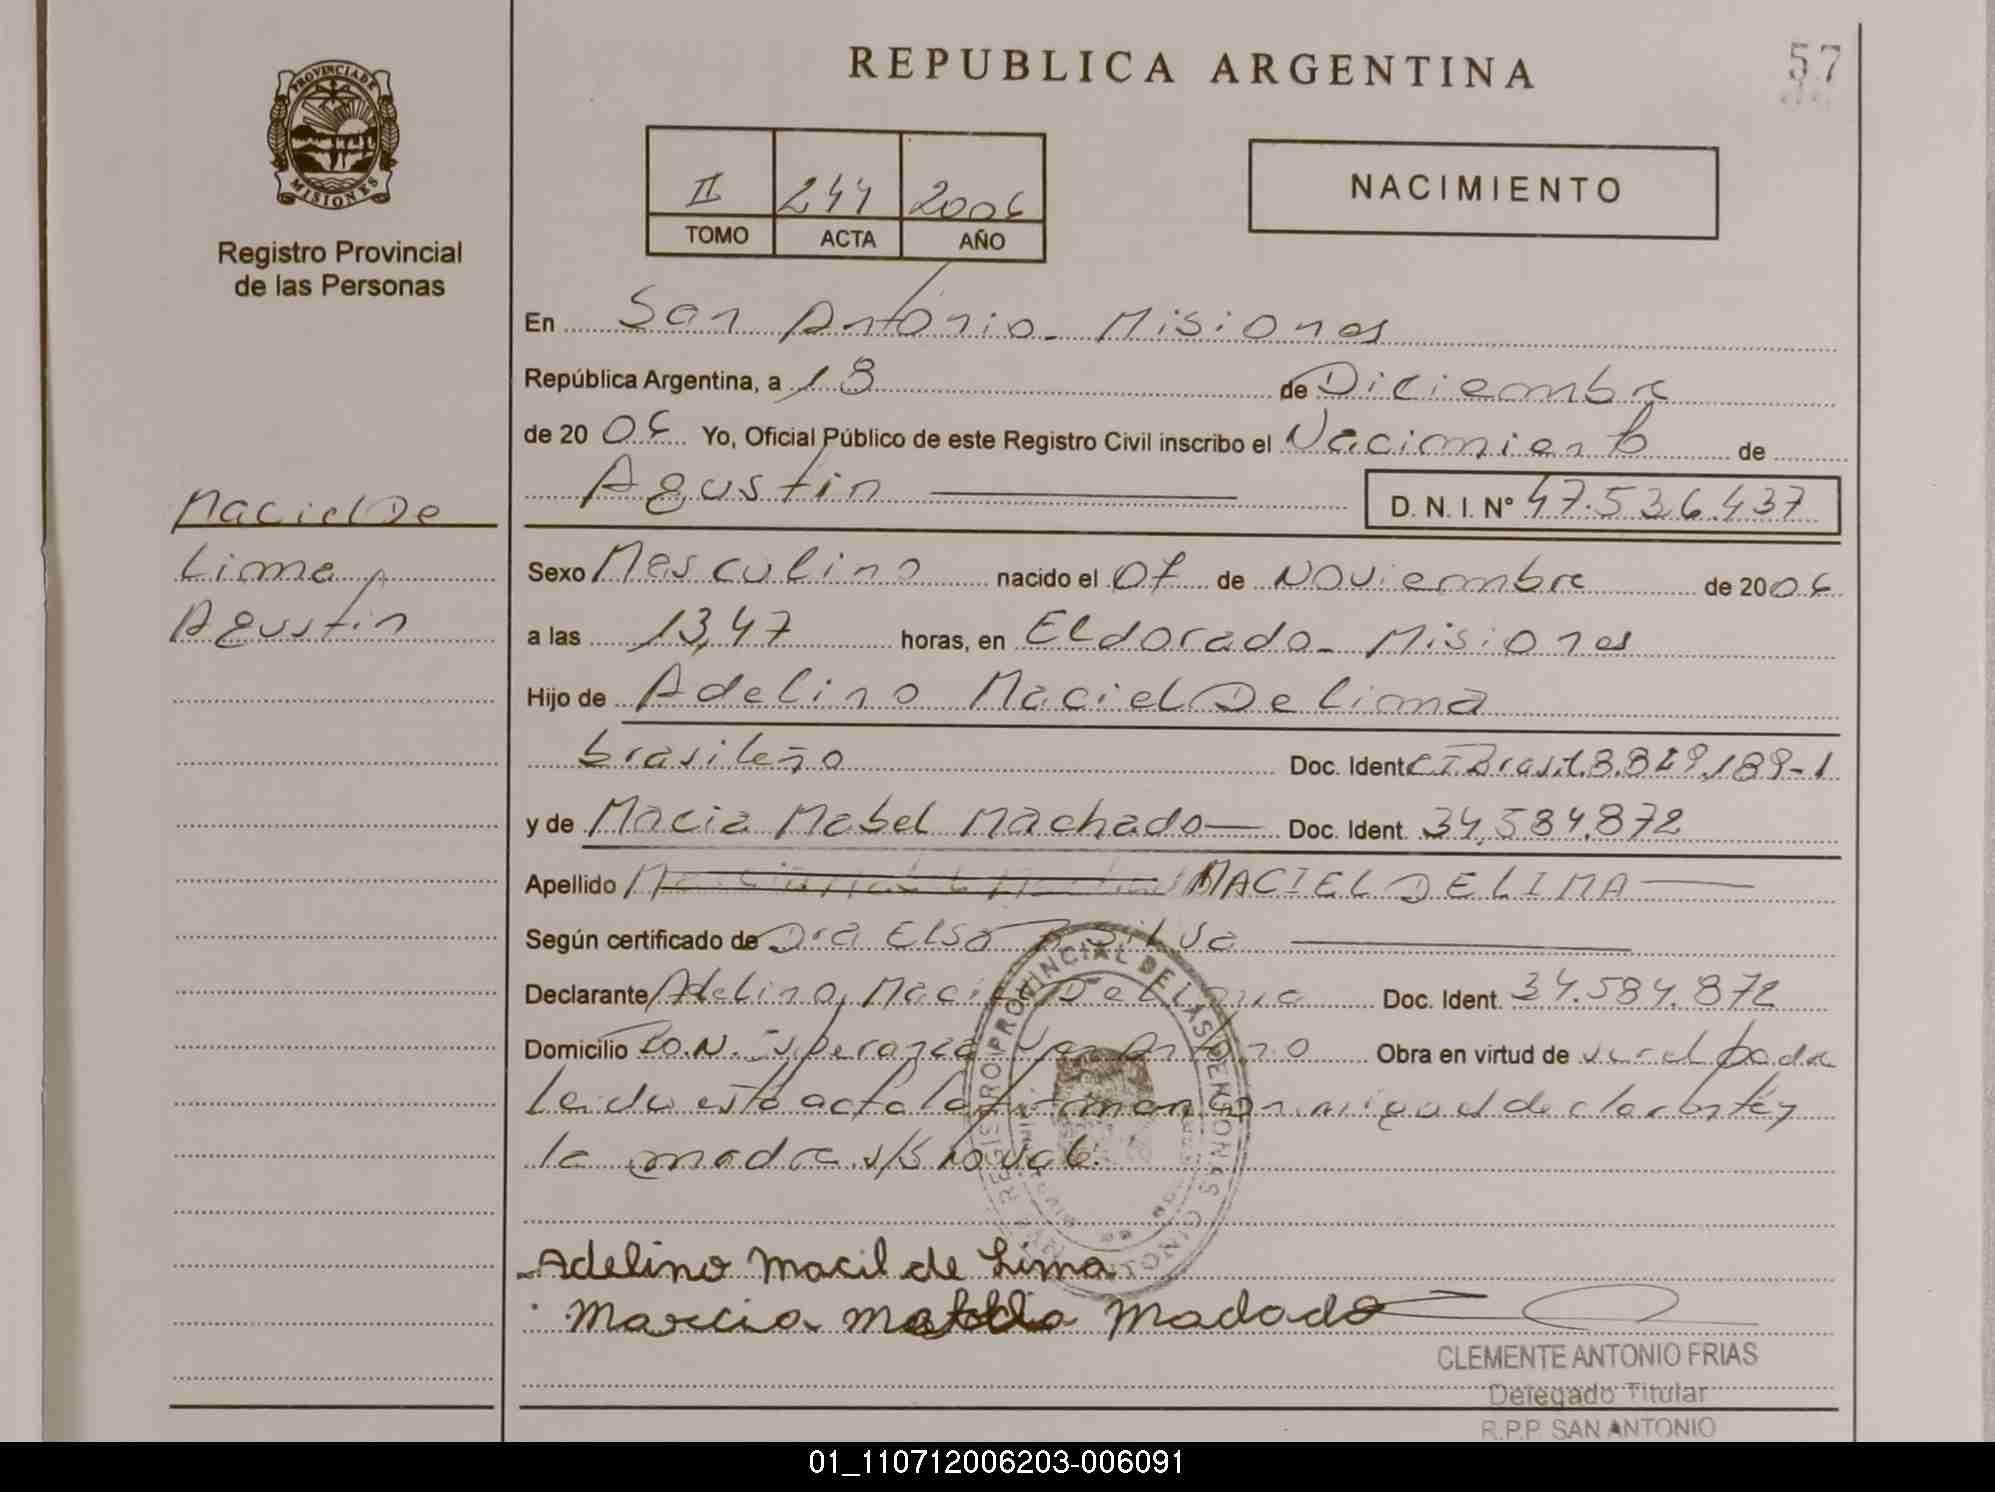 REPUBLICA ARGENTINA
57
PROVINCIA DE
MISIONES
Registro Provincial
de las Personas
II 244 2006
TOMO ACTA AÑO
NACIMIENTO
En San Antonio - Misiones
República Argentina, a 18 de Diciembre
de 20 06 Yo, Oficial Público de este Registro Civil inscribo el Nacimiento de
Agustin D. N. I. Nº 47.536.437
Maciel De
Lima
Agustin
Sexo Masculino nacido el 07 de Noviembre de 2006
a las 13,47 horas, en Eldorado - Misiones
Hijo de Adelino Maciel De Lima
brasileño Doc. Ident. CI Brasil 8.829.189-1
y de Marcia Mabel Machado Doc. Ident. 34.584.872
Apellido MACIEL DE LIMA
Según certificado de Dra Elsa Silva
Declarante Adelino Maciel De Lima Doc. Ident. 34.584.872
Domicilio Esperanza San Antonio Obra en virtud de ser el padre
Leida esta acta la firman conmigo el declarante y
la madre
REGISTRO PROVINCIAL DE LAS PERSONAS
Adelino Macil de Lima
Marcia Madado
CLEMENTE ANTONIO FRIAS
Delegado Titular
R.P.P. SAN ANTONIO
01_110712006203-006091